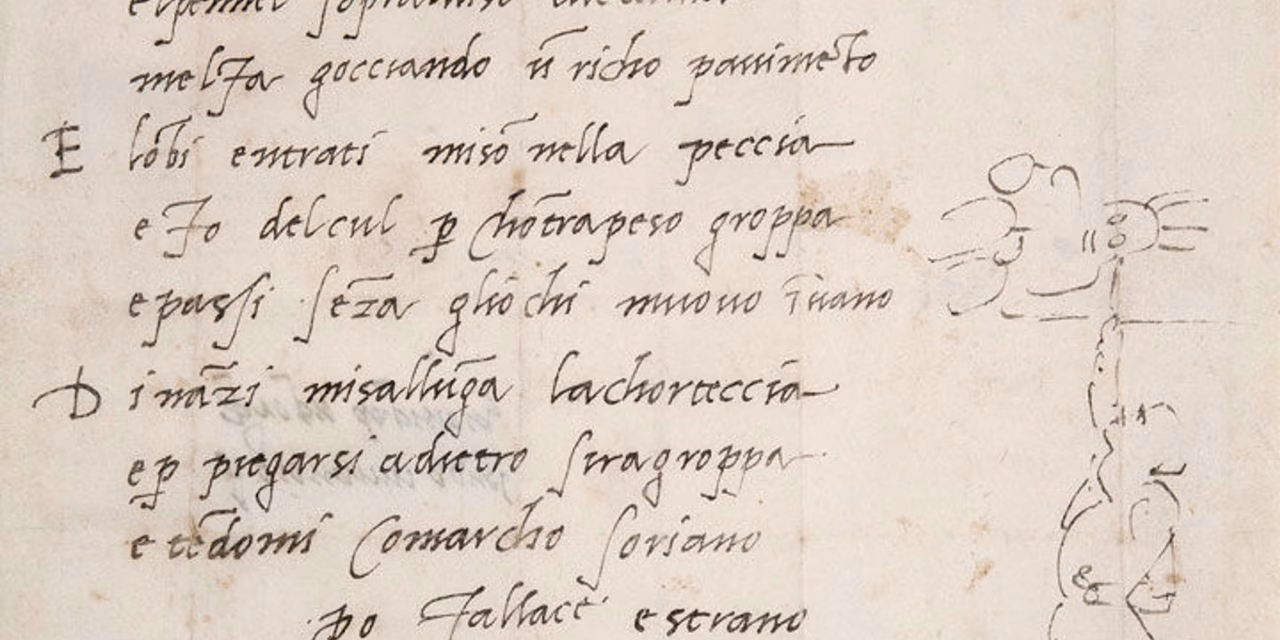 elpennel sopraluiso tuctauia
mel fa gocciando ū richo pauimēto
E lōbi entrati misō nella peccia
e fo delcul p̱ chōtrapeso groppa
e passi sēza gliochi muouo īuano
D ināzi misallūga lachorteccia
e p̱ piegarsi adietro siragroppa
e tēdomi comarcho soriano
p̱o fallace estrano